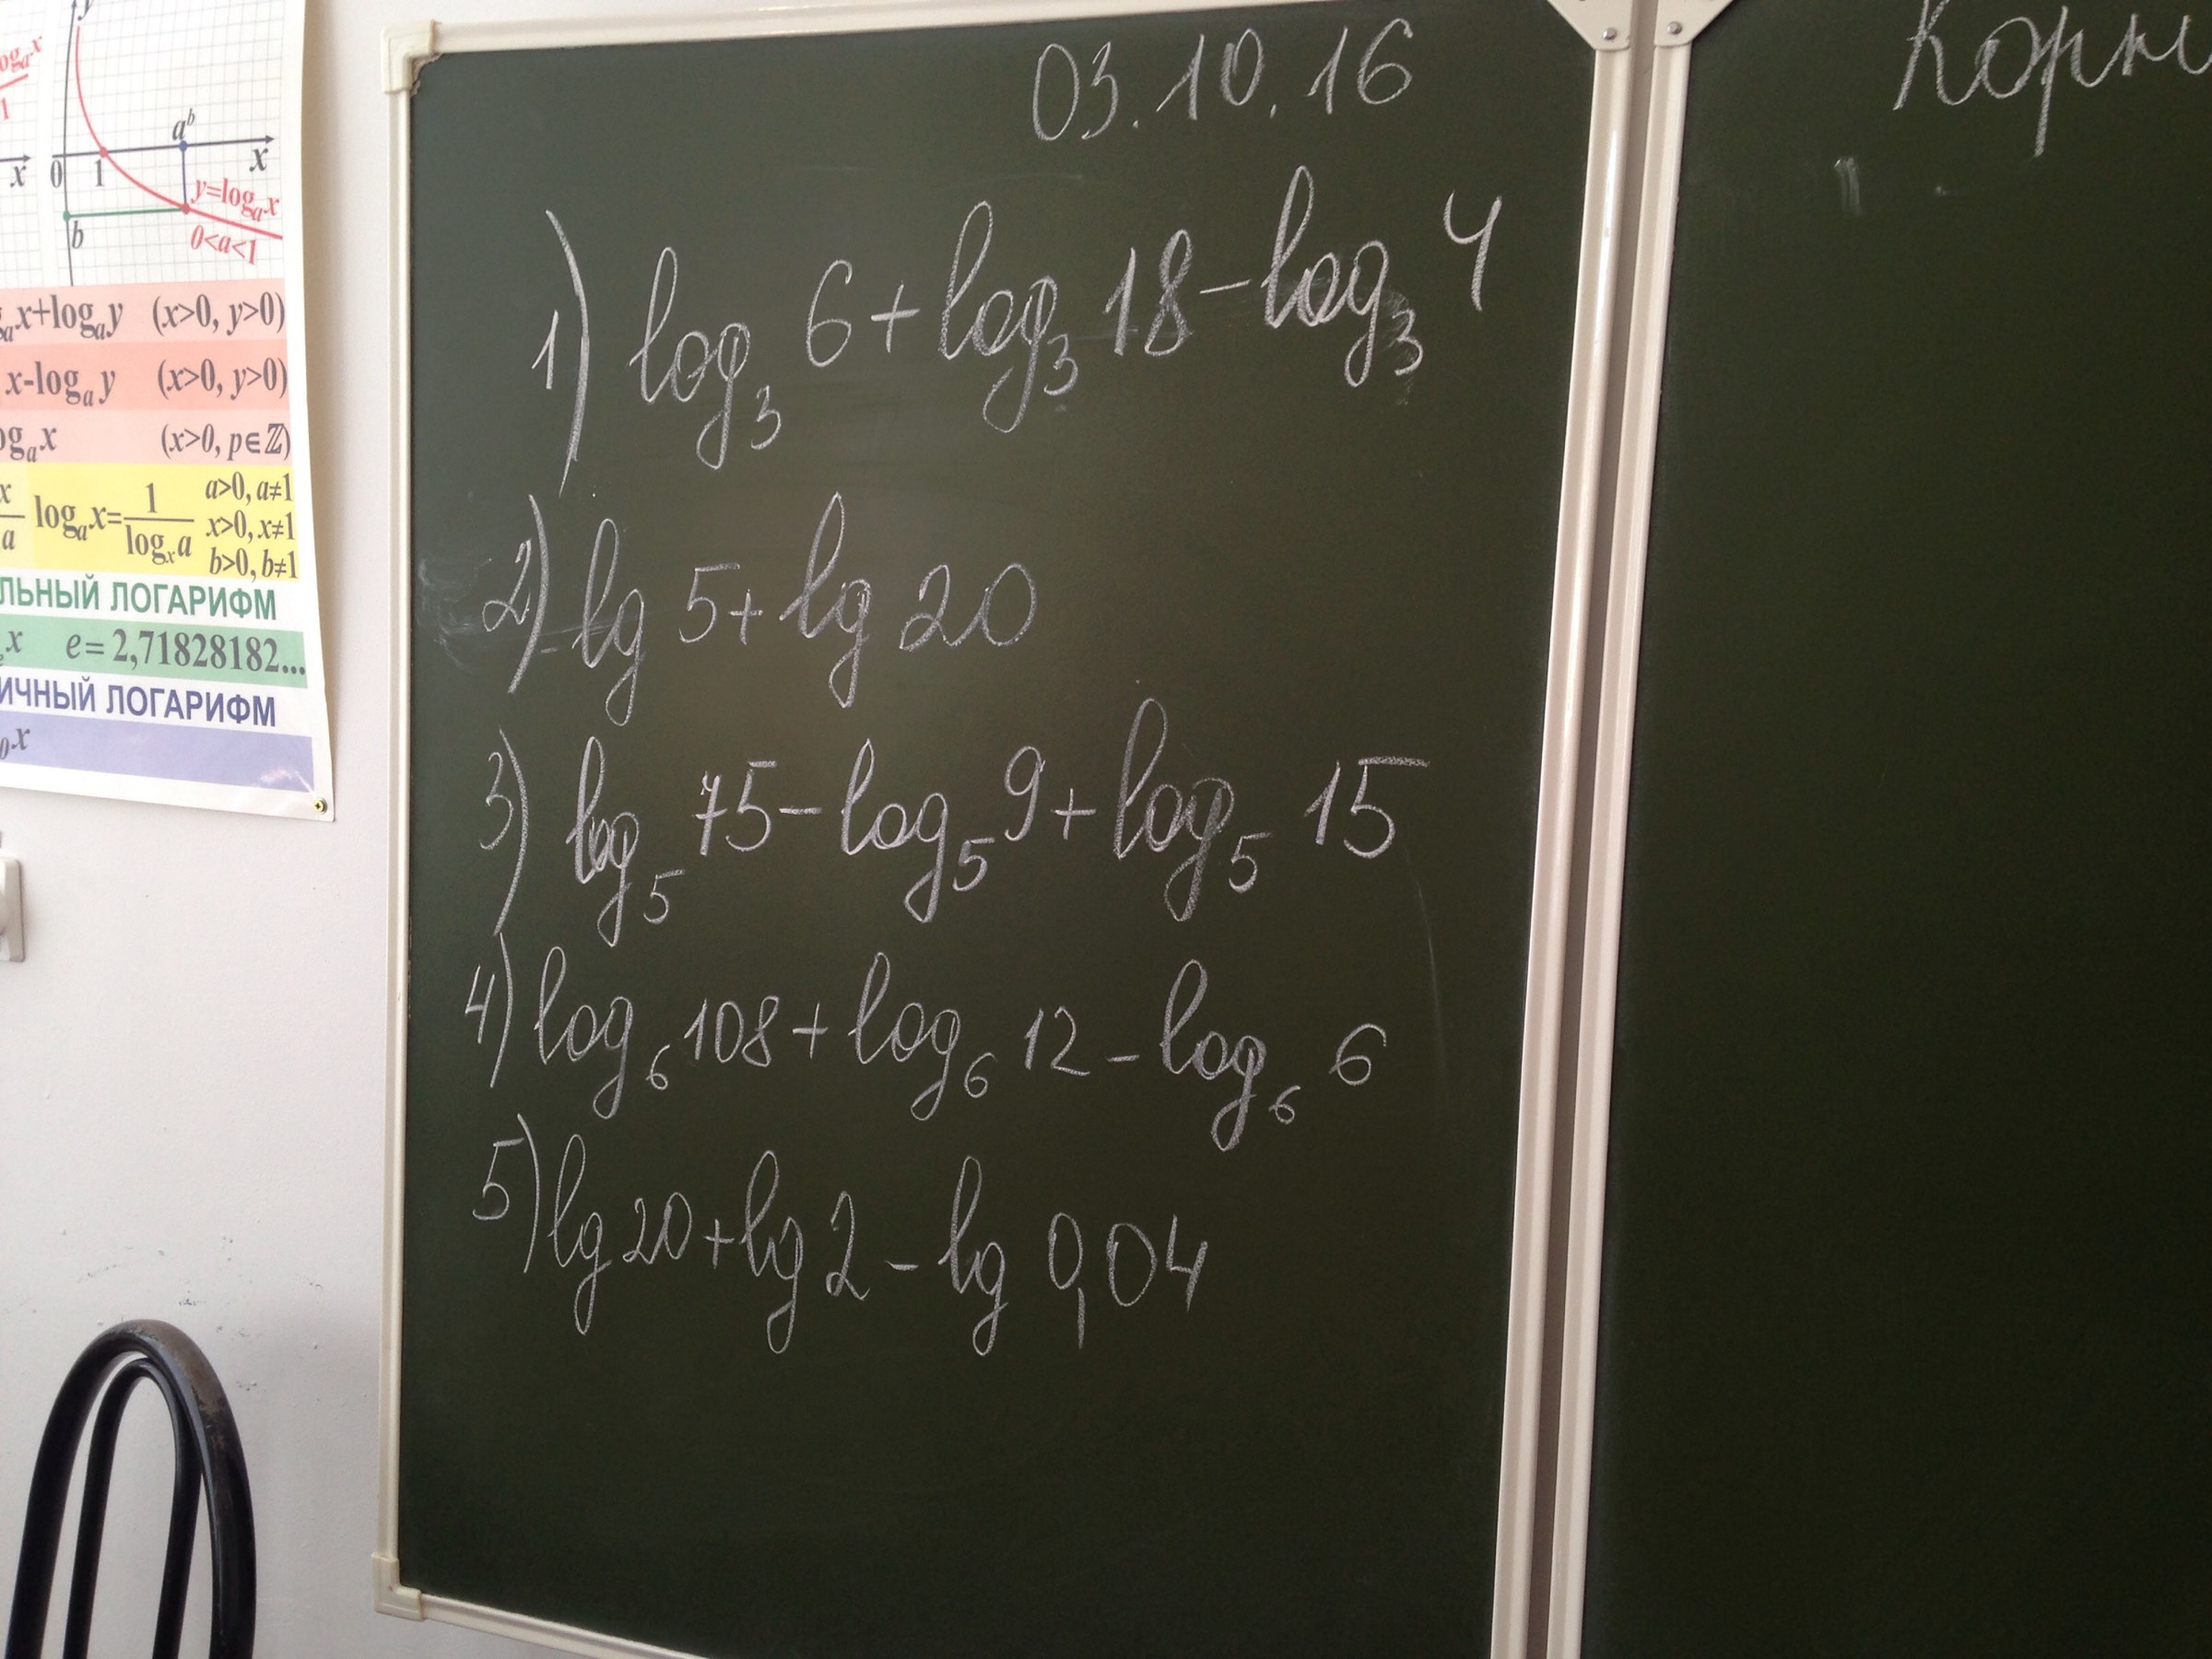 y
logₐx
1
x
aᵇ
0 1 x
y=logₐx
0<a<1
b
ₐx+logₐy (x>0, y>0)
x-logₐy (x>0, y>0)
ogₐx (x>0, p∈ℤ)
x
a
logₐx=1/logₓa
a>0, a≠1
x>0, x≠1
b>0, b≠1
ЛЬНЫЙ ЛОГАРИФМ
x e=2,71828182...
ИЧНЫЙ ЛОГАРИФМ
₀x
03.10.16
1) log₃ 6 + log₃ 18 - log₃ 4
2) lg 5 + lg 20
3) log₅ 75 - log₅ 9 + log₅ 15
4) log₆ 108 + log₆ 12 - log₆ 6
5) lg 20 + lg 2 - lg 0,04
Корн